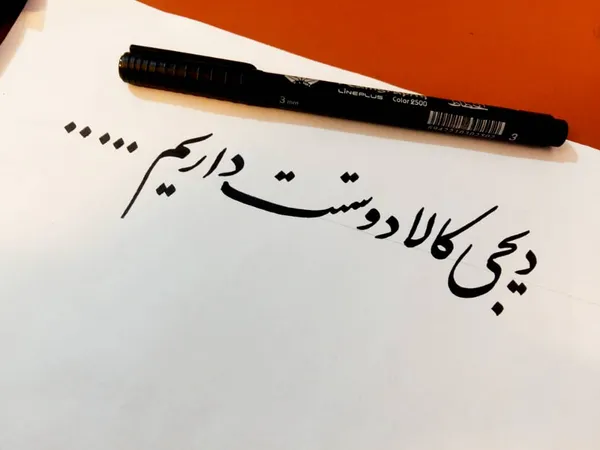 3 mm LINEPLUS Color 2500 3
دیجی کالا دوستت داریم .....